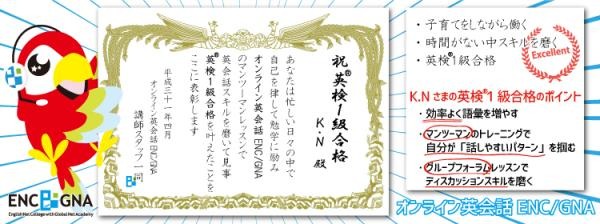 祝 英検®1級合格
K.N 殿
あなたは忙しい日々の中で
自己を律して勉学に励み
オンライン英会話 ENC/GNA
のマンツーマンレッスンで
英会話スキルを磨いて見事
英検®1級合格を叶えたことを
ここに表彰します
平成三十一年四月
オンライン英会話 ENC/GNA
講師スタッフ一同
ENC GNA
English Net College with Global Net Academy
・子育てをしながら働く
・時間がない中スキルを磨く
・英検®1級合格
Excellent
K.N さまの英検®1級合格のポイント
・効率よく語量を増やす
・マンツーマンのトレーニングで
自分が「話しやすいパターン」を掴む
・グループフォーラムレッスンで
ディスカッションスキルを磨く
オンライン英会話 ENC/GNA